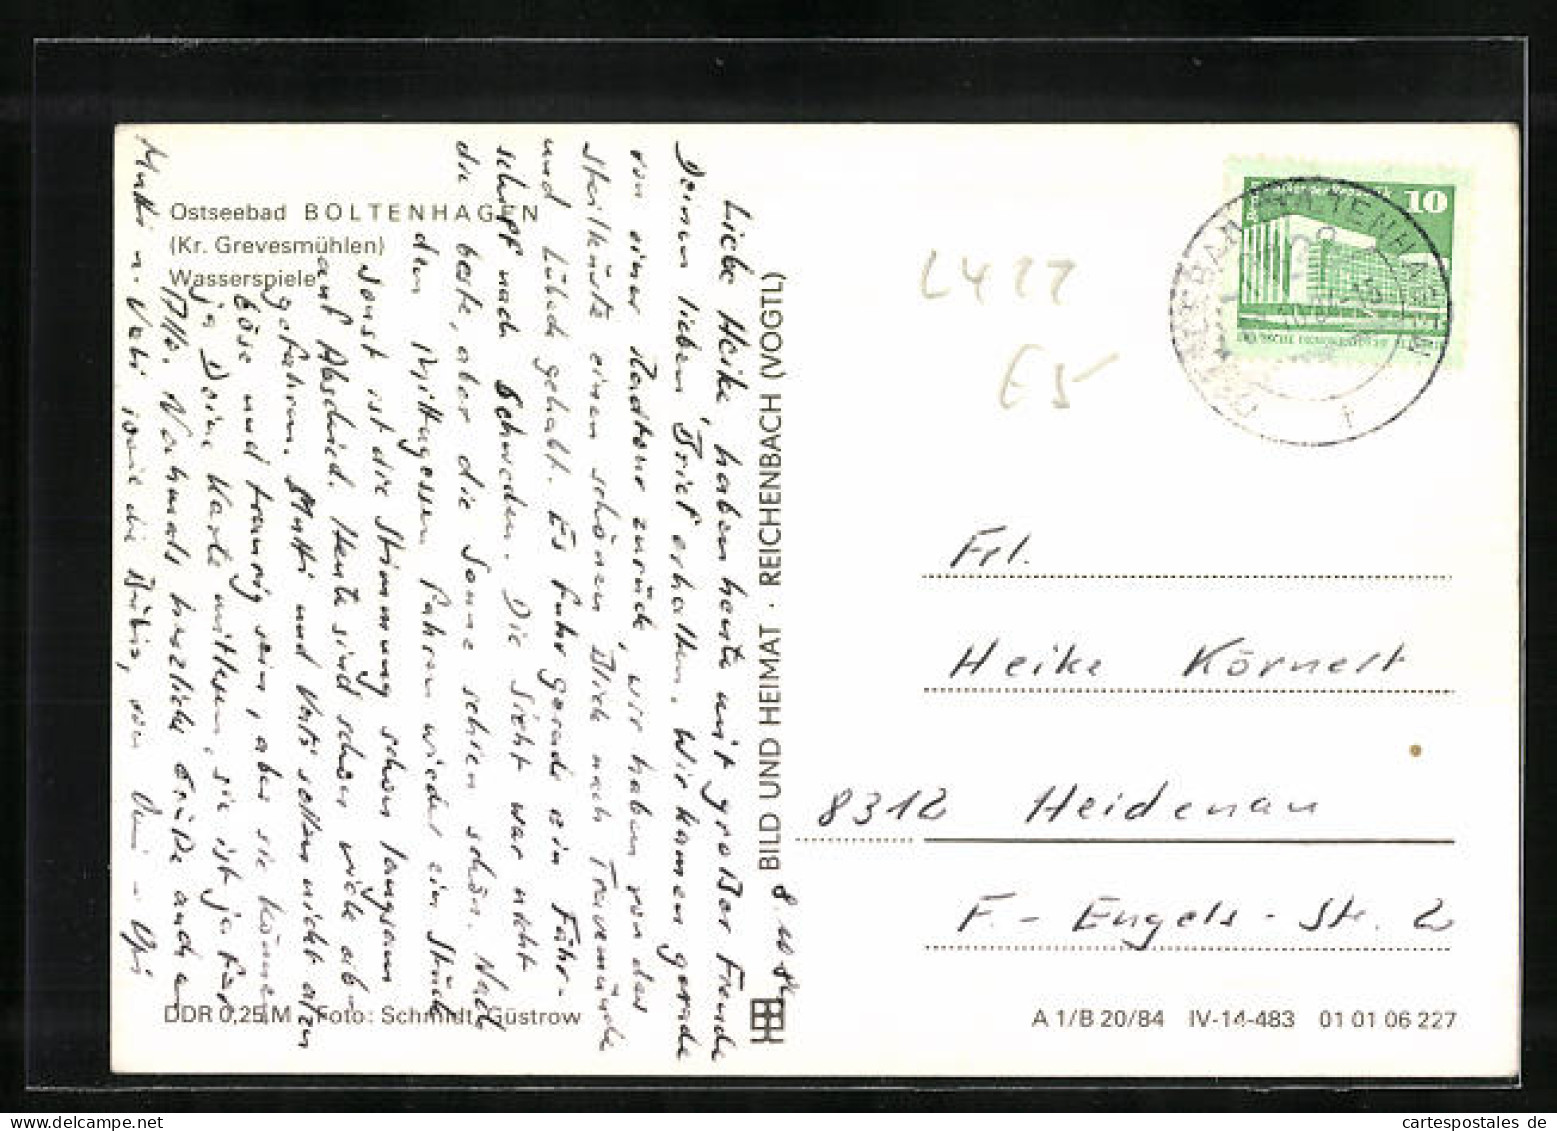 Ostseebad BOLTENHAGEN
(Kr. Grevesmühlen)
Wasserspiele
8. 10. 84
Liebe Heike, haben heute mit großer Freude
Deinen lieben Brief erhalten. Wir kamen gerade
von einer Radtour zurück, wir haben von der
Steilküste einen schönen Blick nach Travemünde
und Lübeck gehabt. Es fuhr gerade ein Fähr-
schiff nach Schweden. Die Sicht war nicht
die beste, aber die Sonne schien schön. Nach
dem Mittagessen fahren wieder ein Stück
Sonst ist die Stimmung schon langsam
auf Abschied. Heute sind schon viele ab-
gefahren. Mutti und Vati sollen nicht
böse und traurig sein, aber sie können
ja Deine Karte mitlesen, sie ist ja für
Alle. Nochmals herzliche Grüße auch an
Mutti u. Vati sowie die Omi - Opi
BILD UND HEIMAT · REICHENBACH (VOGTL)
DDR 0,25 M Foto: Schmidt, Güstrow
L422
E5
10
OSTSEEBAD BOLTENHAGEN
Frl.
Heike Körnert
8312 Heidenau
F.-Engels-Str. 2
A 1/B 20/84 IV-14-483 01 01 06 227
cartespostales de